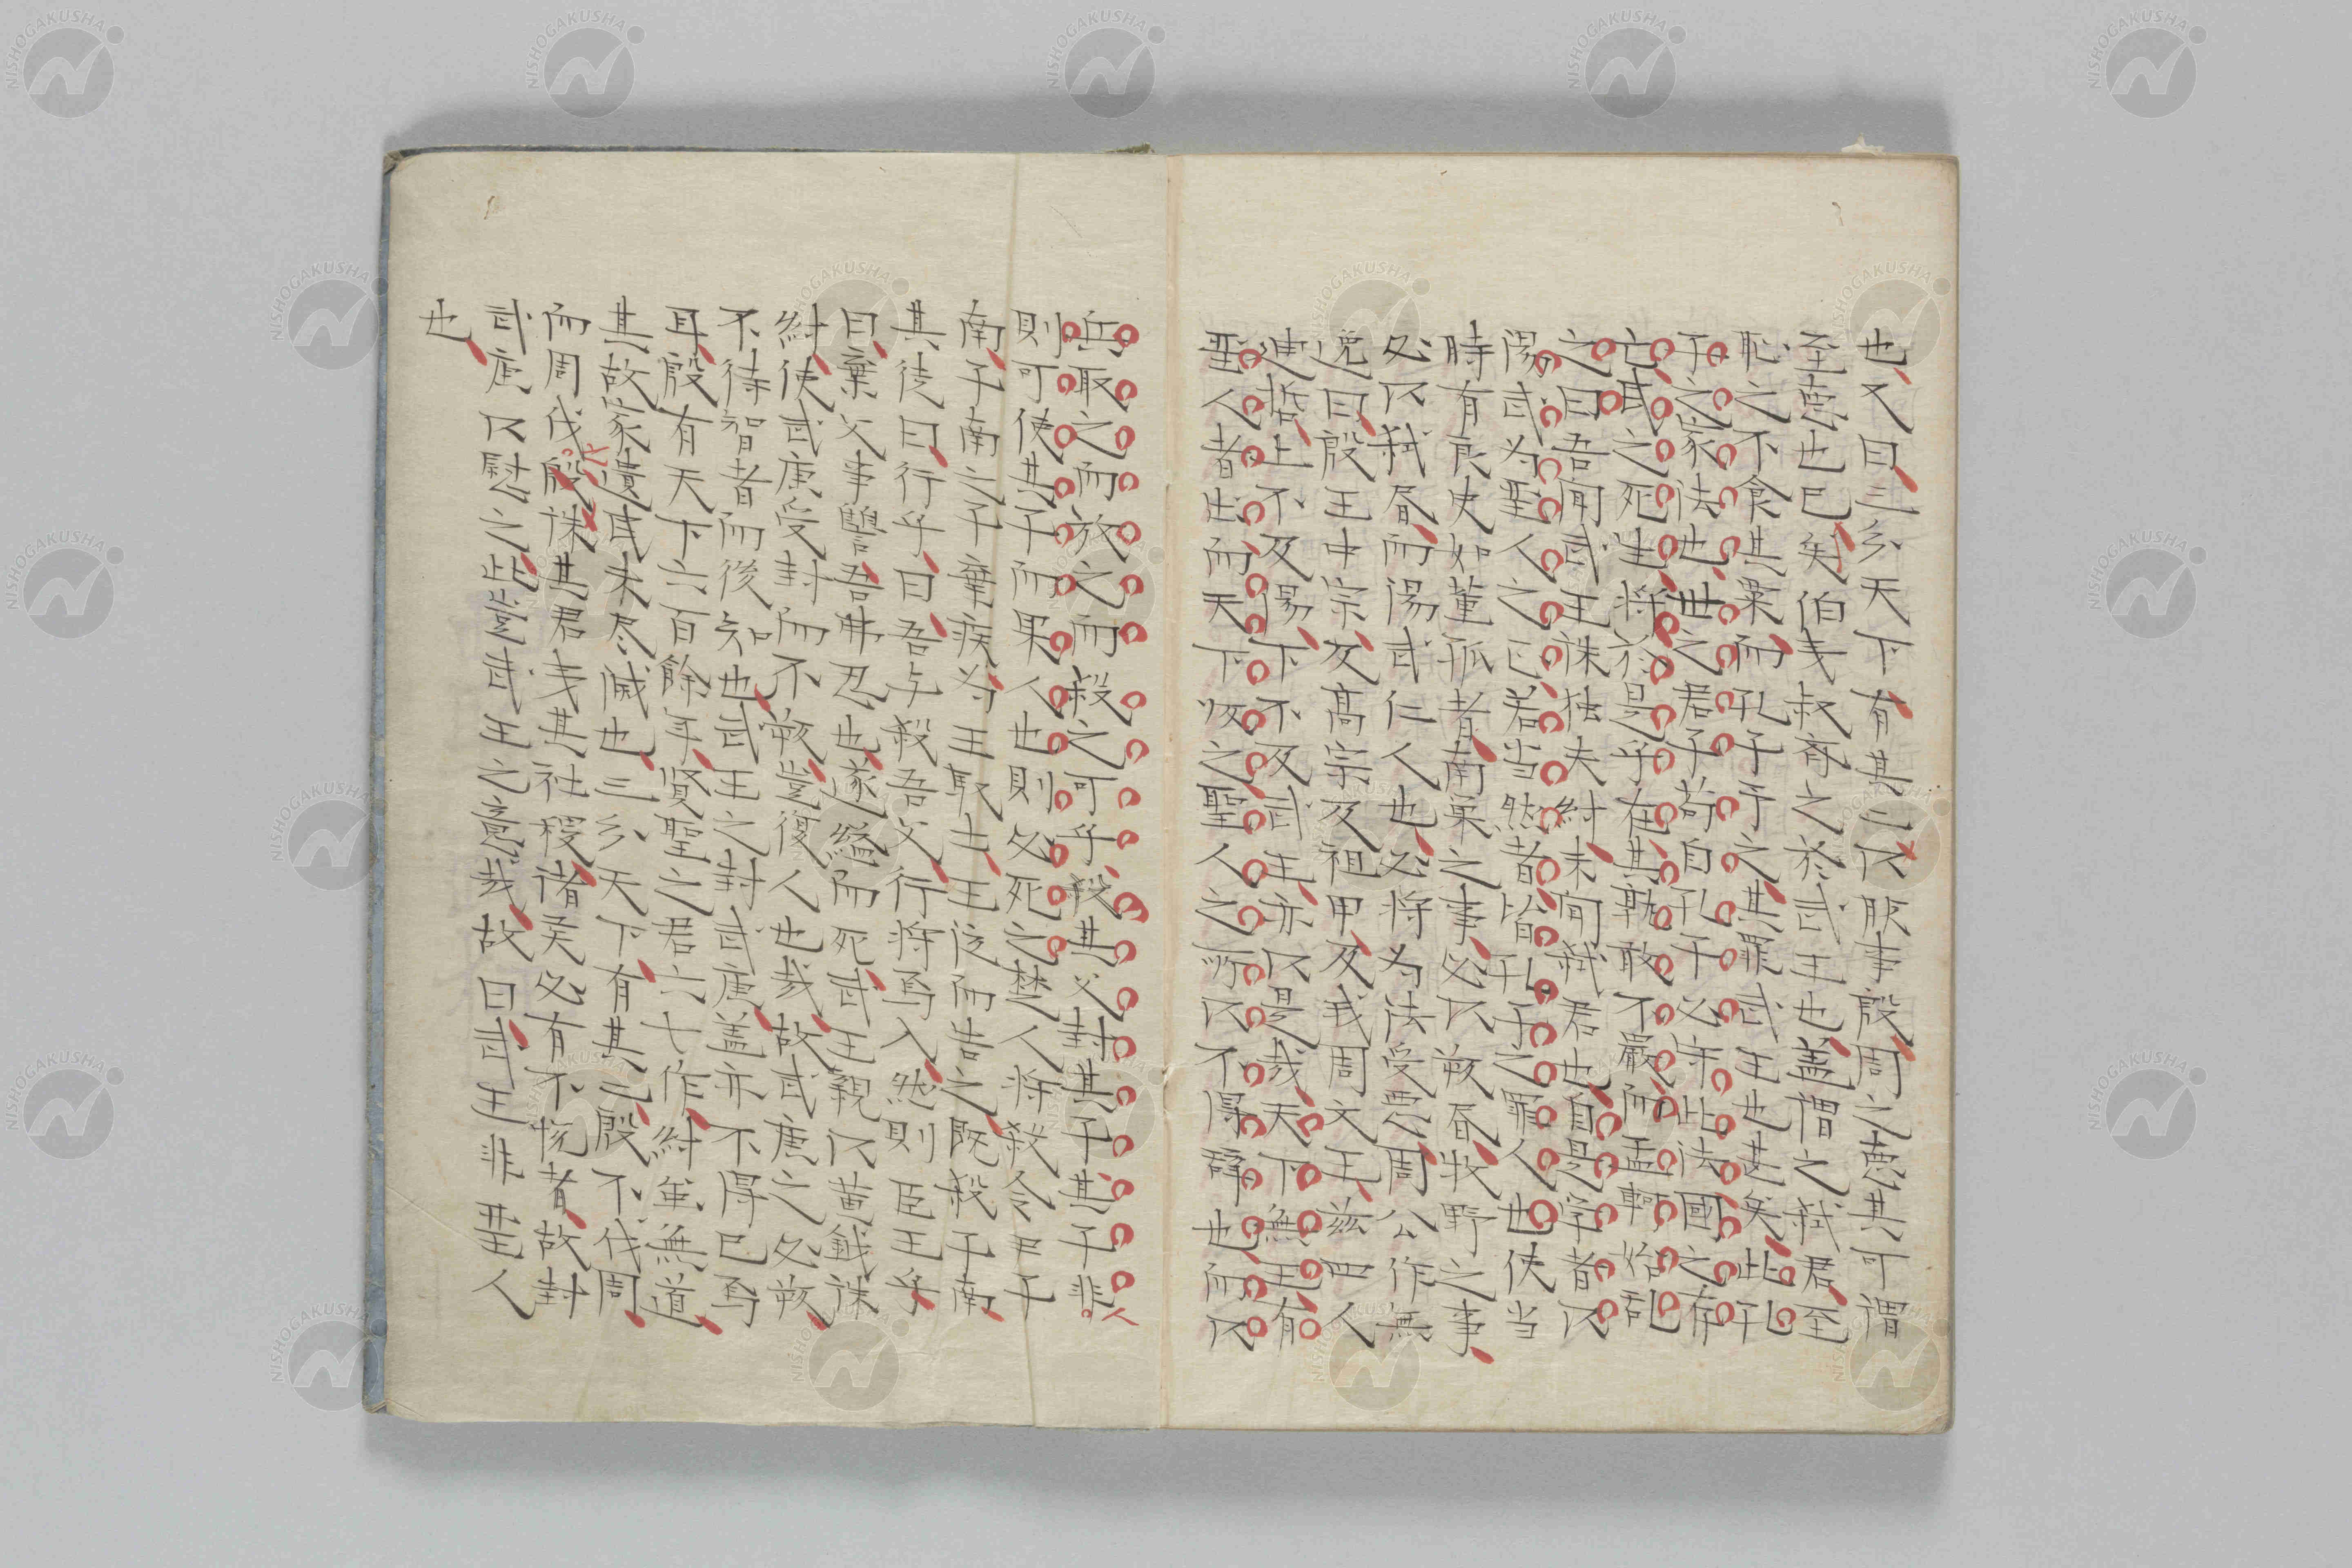 也又曰三分天下有其二以服事殷周之徳其可謂
至徳也已矣伯夷叔斉之於武王也盖謂之弑君至
恥之不食其粟而孔子予之其罪武王也甚矣此孔
子之家法也世之君子苟自孔子必守此法國之存
亡民之死生将於是乎在其孰敢不嚴而孟軻始乱
之曰吾聞武王誅独夫紂未聞弑君也自是学者以
湯武為聖人之正若当然者皆孔子之罪人也使当
時有良史如董狐者南巣之事必以叛書牧野之事
必以弑書而湯武仁人也必将為法受悪周公作無
逸曰殷王中宗及高宗及祖甲及我周文王茲四人
迪哲上不及湯下不及武王亦以是哉天下無王有
聖人者出而天下帰之聖人之所以不得辞也而以
兵取之而放之而殺之可乎殺其父封其子其子非人
則可使其子而果人也則必死之楚人将殺令尹子
南子南之子棄疾為王馭士王泣而告之既殺子南
其徒曰行乎曰吾与殺吾父行将焉入然則臣王乎
曰棄父事讐吾弗忍也遂縊而死武王親以黄鉞誅
紂使武庚受封而不叛豈復人也哉故武庚之必叛
不待智者而後知也武王之封武庚盖亦不得已焉
耳殷有天下六百餘年賢聖之君六七作紂虽無道
其故家遺民未尽滅也三分天下有其二殷不伐周
而周伐殷誅其君夷其社稷諸侯必有不悦者故封
武庚以慰之此豈武王之意哉故曰武王非聖人
也
NISHOGAKUSHA